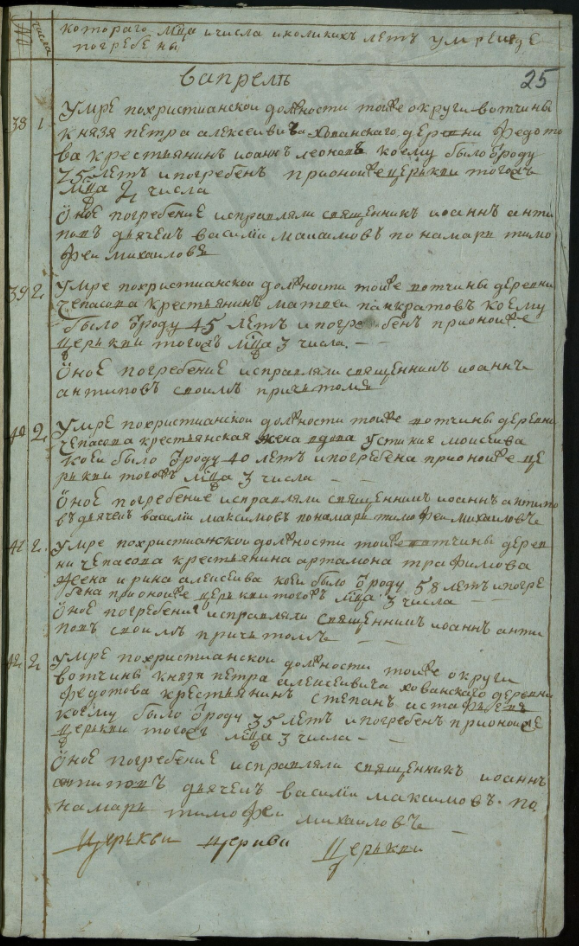 № числа которагѡ мца и числа и коликихъ летъ умре и где
погребены
25
Вапрелѣ
38 1 Умре похристианской должности тойже округи вотчины
князя петра алексеивича хованскаго деревни федото
ва крестьянинъ иоаннъ леоновъ коему было ѿроду
75 летъ и погребенъ прионойже церькви тогожъ
мца 2 числа
Оное погребение исправляли священникъ иоаннъ анти
повъ дьячекъ василий максимовъ понамарь тимо
фей михаиловъ
39 2 Умре похристианской должности тойже вотчины деревни
чепасова крестьянинъ матвей панкратовъ коему
было ѿроду 45 летъ и погребенъ прионойже
церькви тогожъ мца 3 числа
Оное погребение исправляли священникъ иоаннъ
антиповъ своимъ причьтомъ
40 2 Умре похристианской должности тойже вотчины деревни
чепасова крестьянская жена вдова устиния моисеива
коей было ѿроду 40 летъ и погребена прионойже це
рькви тогожъ мца 3 числа
Оное погребение исправляли священникъ иоаннъ антипо
въ дьячекъ василий максимовъ понамарь тимофей михаиловъ
41 2 Умре похристианской должности тойже вотчины дерев
ни чепасова крестьянина артамона трафимова
жена ирина алексеива коей было ѿроду 58 летъ и погре
бена прионойже церькви тогожъ мца 3 числа
Оное погребение исправляли священникъ иоаннъ анти
повъ своимъ причьтомъ
42 2 Умре похристианской должности тойже округи
вотчины князя петра алексеивича хованскаго деревни
федотова крестьянинъ степанъ естафьевъ
коему было ѿроду 35 летъ и погребенъ прионойже
церькви тогожъ мца 3 числа
Оное погребение исправляли священникъ иоаннъ
антиповъ дьячекъ василий максимовъ по
намарь тимофей михаиловъ
Церькви церкви Церькви